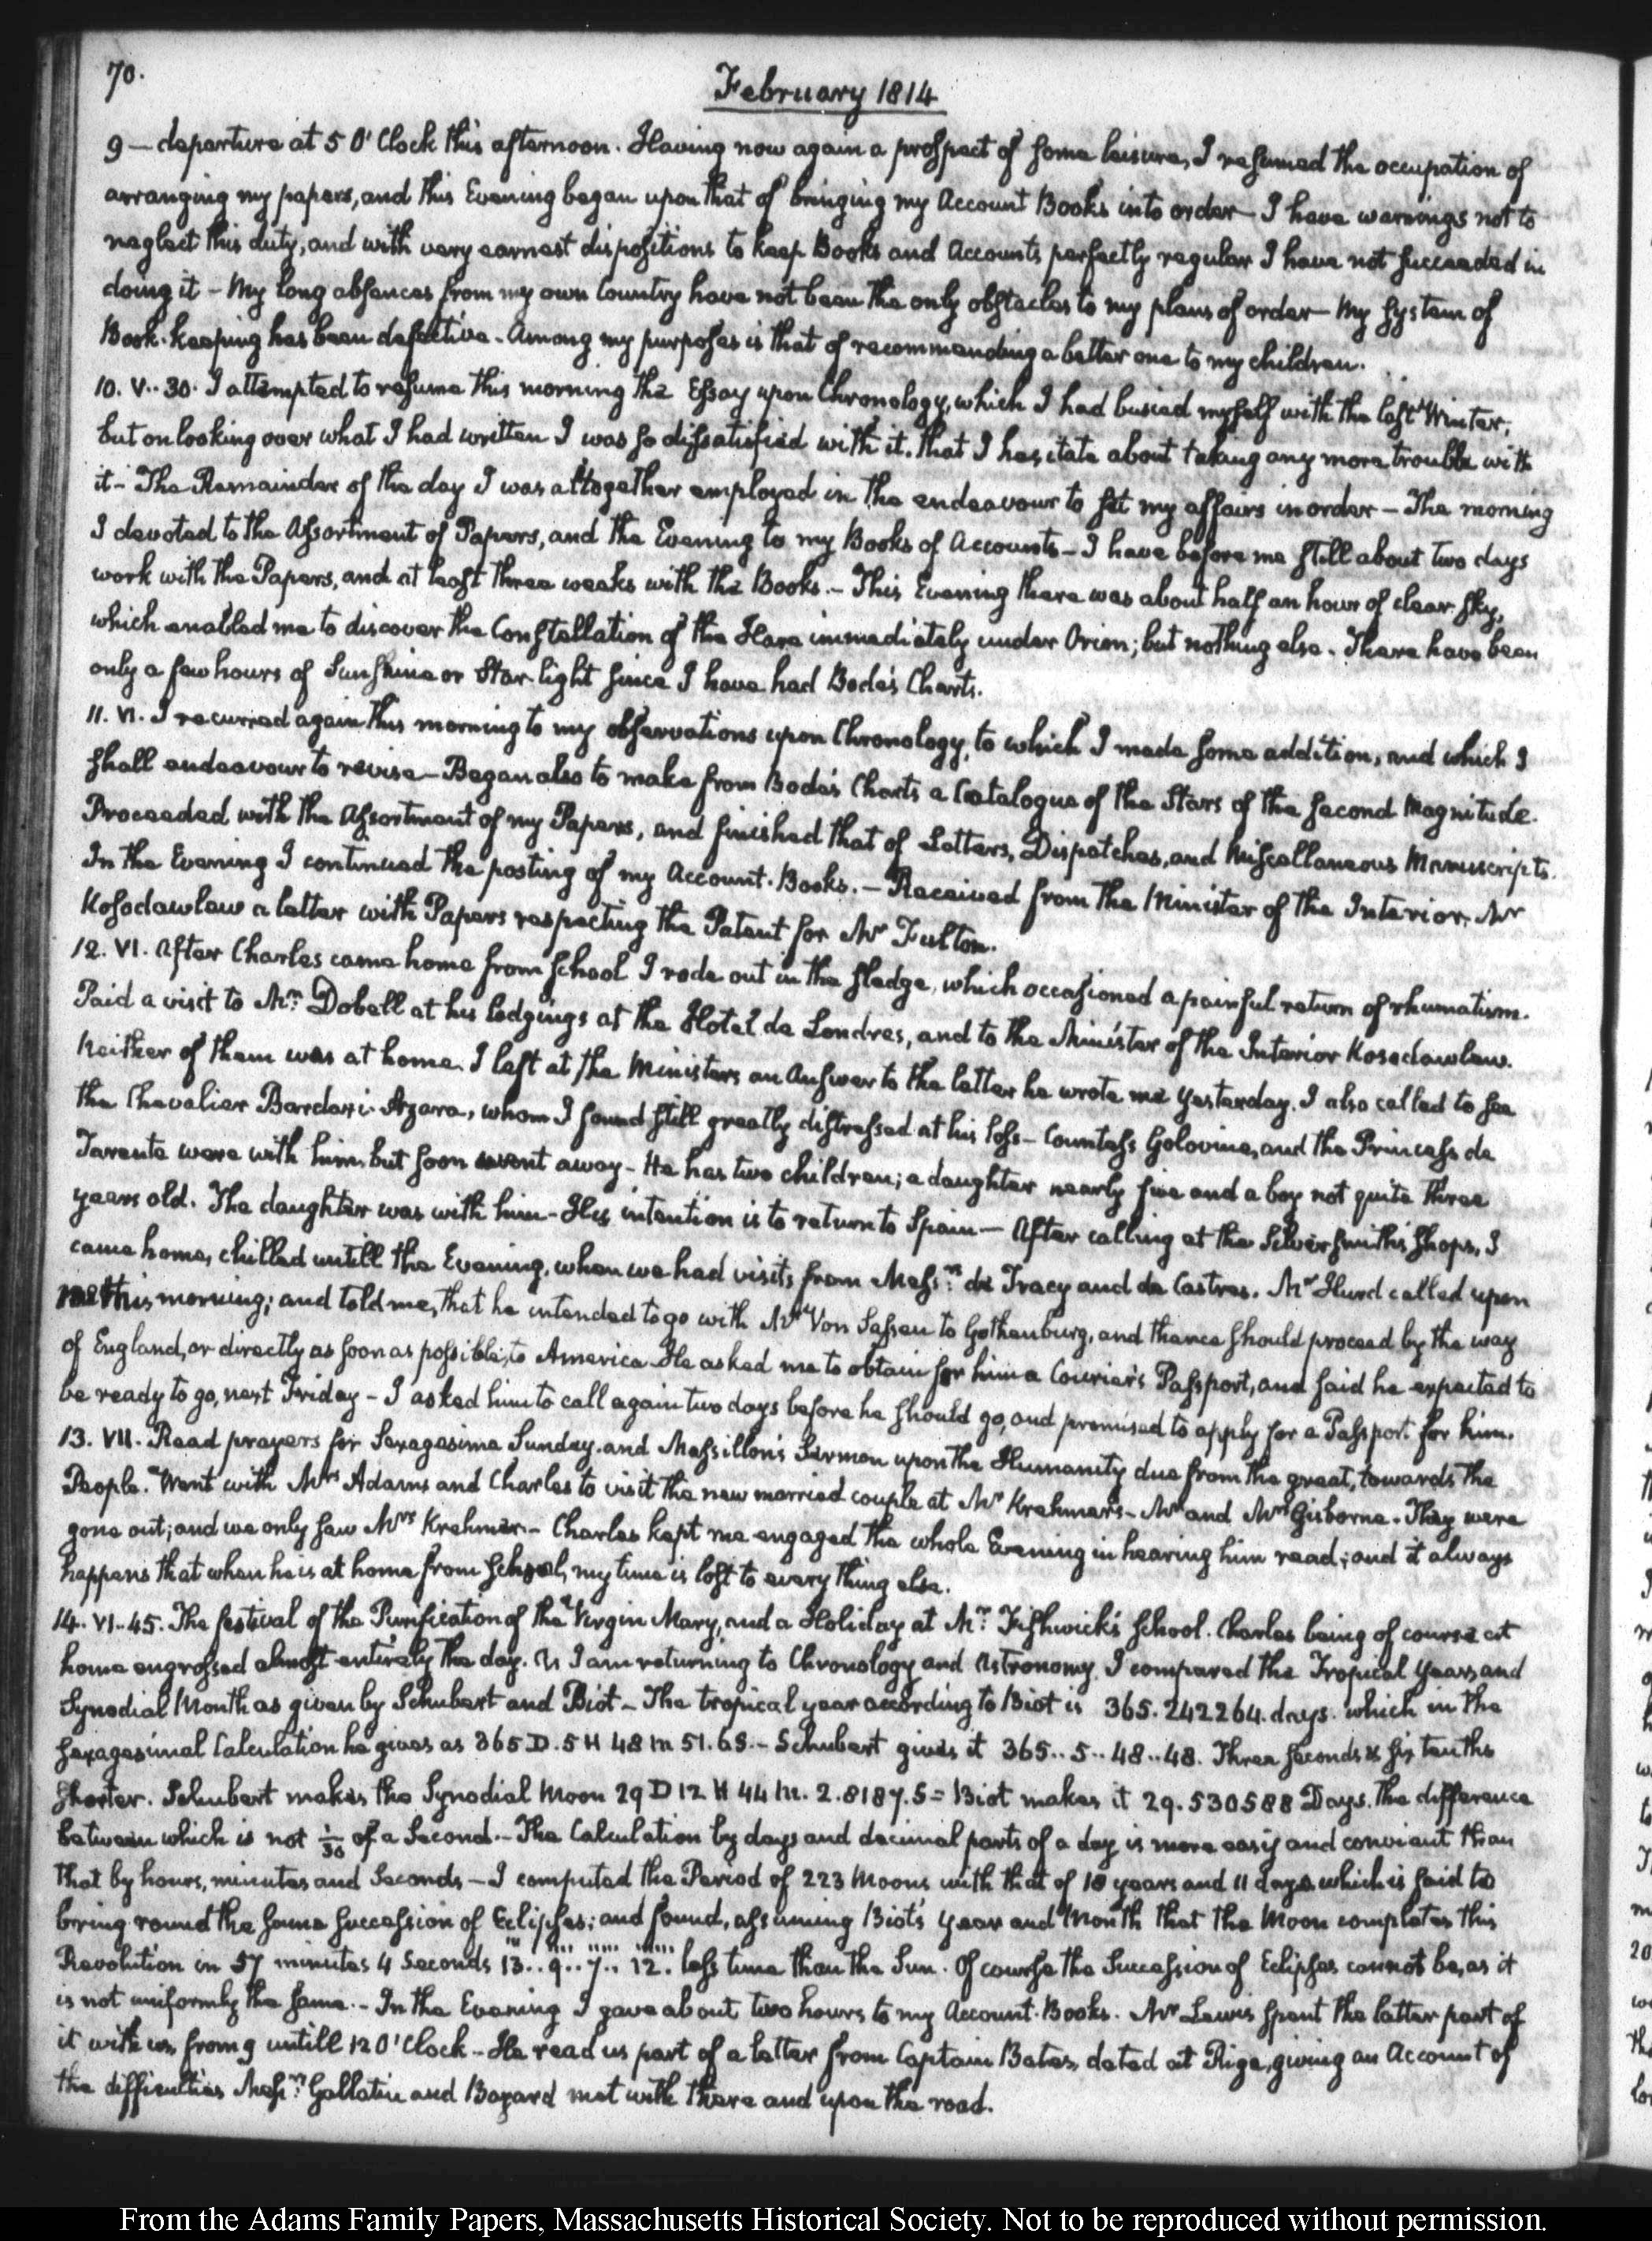 70.
February 1814
9 — departure at 5 O'Clock this afternoon. Having now again a prospect of some leisure, I resumed the occupation of
arranging my papers, and this Evening began upon that of bringing my Account Books into order — I have warnings not to
neglect this duty, and with very earnest dispositions to keep Books and Accounts perfectly regular I have not succeeded in
doing it — My long absences from my own Country have not been the only obstacles to my plans of order — My system of
Book-keeping has been defective. Among my purposes is that of recommending a better one to my children.
10. V..30. I attempted to resume this morning the Essay upon Chronology, which I had busied myself with the last Winter;
but on looking over what I had written I was so dissatisfied with it, that I hesitate about taking any more trouble with
it — The Remainder of the day I was altogether employed in the endeavour to set my affairs in order — The morning
I devoted to the Assortment of Papers, and the Evening to my Books of Accounts — I have before me still about two days
work with the Papers, and at least three weeks with the Books. — This Evening there was about half an hour of clear sky,
which enabled me to discover the Constellation of the Hare immediately under Orion; but nothing else. There have been
only a few hours of Sunshine or Star-light since I have had Bode's Charts.
11. VI. I recurred again this morning to my observations upon Chronology, to which I made some addition, and which I
shall endeavour to revise — Began also to make from Bode's Charts a Catalogue of the Stars of the second Magnitude.
Proceeded with the Assortment of my Papers, and finished that of Letters, Dispatches, and Miscellaneous Manuscripts.
In the Evening I continued the posting of my Account-Books. — Received from the Minister of the Interior, Mr
Kosodawlew a letter with Papers respecting the Patent for Mr Fulton.
12. VI. After Charles came home from school I rode out in the sledge, which occasioned a painful return of rhumatism.
Paid a visit to Mr: Dobell at his lodgings at the Hotel de Londres, and to the Minister of the Interior Kosodawlew.
Neither of them was at home. I left at the Ministers an Answer to the letter he wrote me yesterday. I also called to see
the Chevalier Bardaxi-Azara, whom I found still greatly distressed at his loss — Countess Golovine, and the Princess de
Tarente were with him, but soon went away — He has two children; a daughter nearly five and a boy not quite three
years old. The daughter was with him — His intention is to return to Spain — After calling at the Silversmith's shops, I
came home, chilled untill the Evening, when we had visits from Messrs: de Tracy and de Castres. Mr Hurd called upon
me this morning; and told me, that he intended to go with Mr Von Sassen to Gothenburg, and thence should proceed by the way
of England, or directly as soon as possible, to America — He asked me to obtain for him a Courier's Passport, and said he expected to
be ready to go, next Friday — I asked him to call again two days before he should go, and promised to apply for a Passport for him.
13. VII. Read prayers for Sexagesima Sunday, and Massillon's Sermon upon the Humanity due from the great, towards the
People. Went with Mrs Adams and Charles to visit the new married couple at Mr Krehmer's — Mr and Mrs Gisborne. They were
gone out; and we only saw Mrs Krehmer. — Charles kept me engaged the whole Evening in hearing him read; and it always
happens that when he is at home from School, my time is lost to every thing else.
14. VI..45. The festival of the Purification of the Virgin Mary, and a Holiday at Mr: Fishwick's school. Charles being of course at
home engrossed almost entirely the day. As I am returning to Chronology and Astronomy, I compared the Tropical Years, and
Synodial Month as given by Schubert and Biot — The tropical year according to Biot is 365.242264. days. which in the
sexagesimal Calculation he gives as 365 D. 5 H 48 m 51.6 S. — Schubert gives it 365..5..48..48. Three seconds & six tenths
shorter. Schubert makes the Synodial Moon 29 D 12 H 44 m. 2.8187. S = Biot makes it 29.530588 Days. The difference
between which is not 1/30 of a Second. — The Calculation by days and decimal parts of a day is more easy and convient than
that by hours, minutes and Seconds — I computed the Period of 223 Moons with that of 18 years and 11 days, which is said to
bring round the same succession of Eclipses; and found, assuming Biot's Year and Month that the Moon completes this
Revolution in 57 minutes 4 Seconds 13..9..7..12. less time than the Sun. Of course the Succession of Eclipses cannot be, as it
is not uniformly the same. — In the Evening I gave about two hours to my Account-Books. Mr Lewis spent the latter part of
it with us, from 9 untill 12 O'Clock — He read us part of a letter from Captain Bates, dated at Riga, giving an Account of
the difficulties Messrs: Gallatin and Bayard met with there and upon the road.
From the Adams Family Papers, Massachusetts Historical Society. Not to be reproduced without permission.